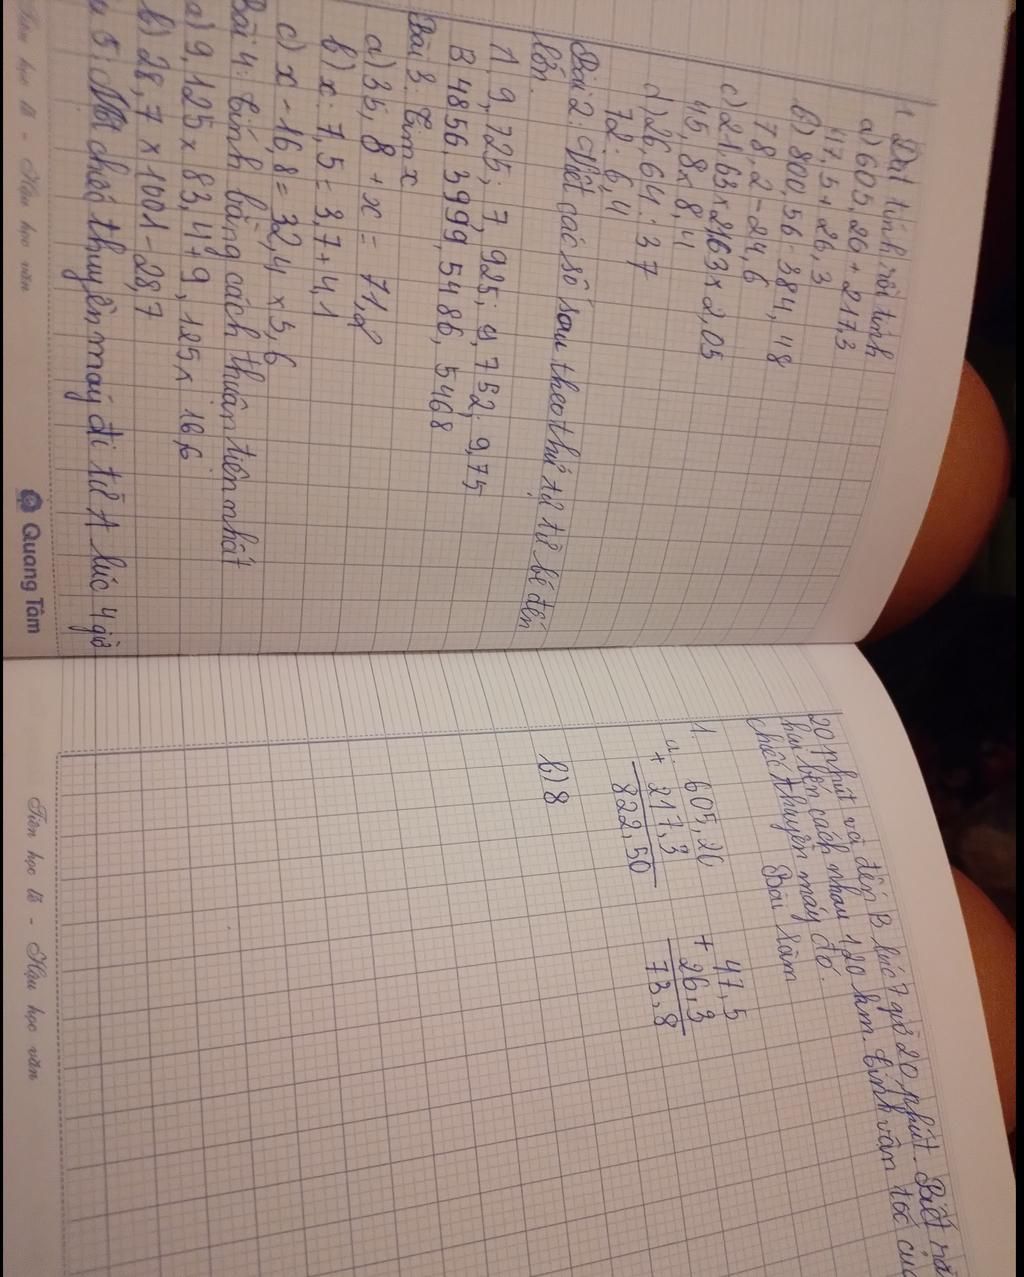 1 Đặt tính rồi tính
a) 605,26 + 217,3
47,5 + 26,3
b) 800,56 - 384,48
78,2 - 24,6
c) 21,63 x 2,05
45,8 x 8,4
d) 26,64 : 37
72 : 6,4
Bài 2: Viết các số sau theo thứ tự từ bé đến
lớn.
A 9,725; 7,925; 9,752; 9,75
B 4856, 3999, 5486, 5468
Bài 3. Tìm x
a) 35,8 + x = 71,2
b) x : 7,5 = 3,7 + 4,1
c) x - 16,8 = 32,4 x 3,6
Bài 4: Tính bằng cách thuận tiện nhất
a) 9,125 x 83,4 + 9,125 x 16,6
b) 28,7 x 1001 - 28,7
5: Một chiếc thuyền máy đi từ A lúc 4 giờ
Tiên học lễ - Hậu học văn
Quang Tâm
20 phút và đến B lúc 7 giờ 20 phút. Biết
hai bến cách nhau 120 km. Tính vận tốc của
chiếc thuyền máy đó.
Bài làm
1.
a. 605,26 47,5
+ 217,3 + 26,3
822,50 73,8
b) 8
Tiên học lễ - Hậu học văn